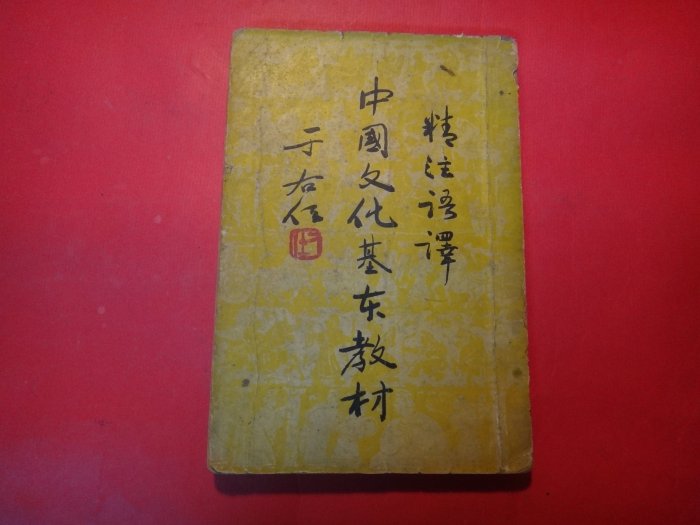 精注語譯
中國文化基本教材
于右任